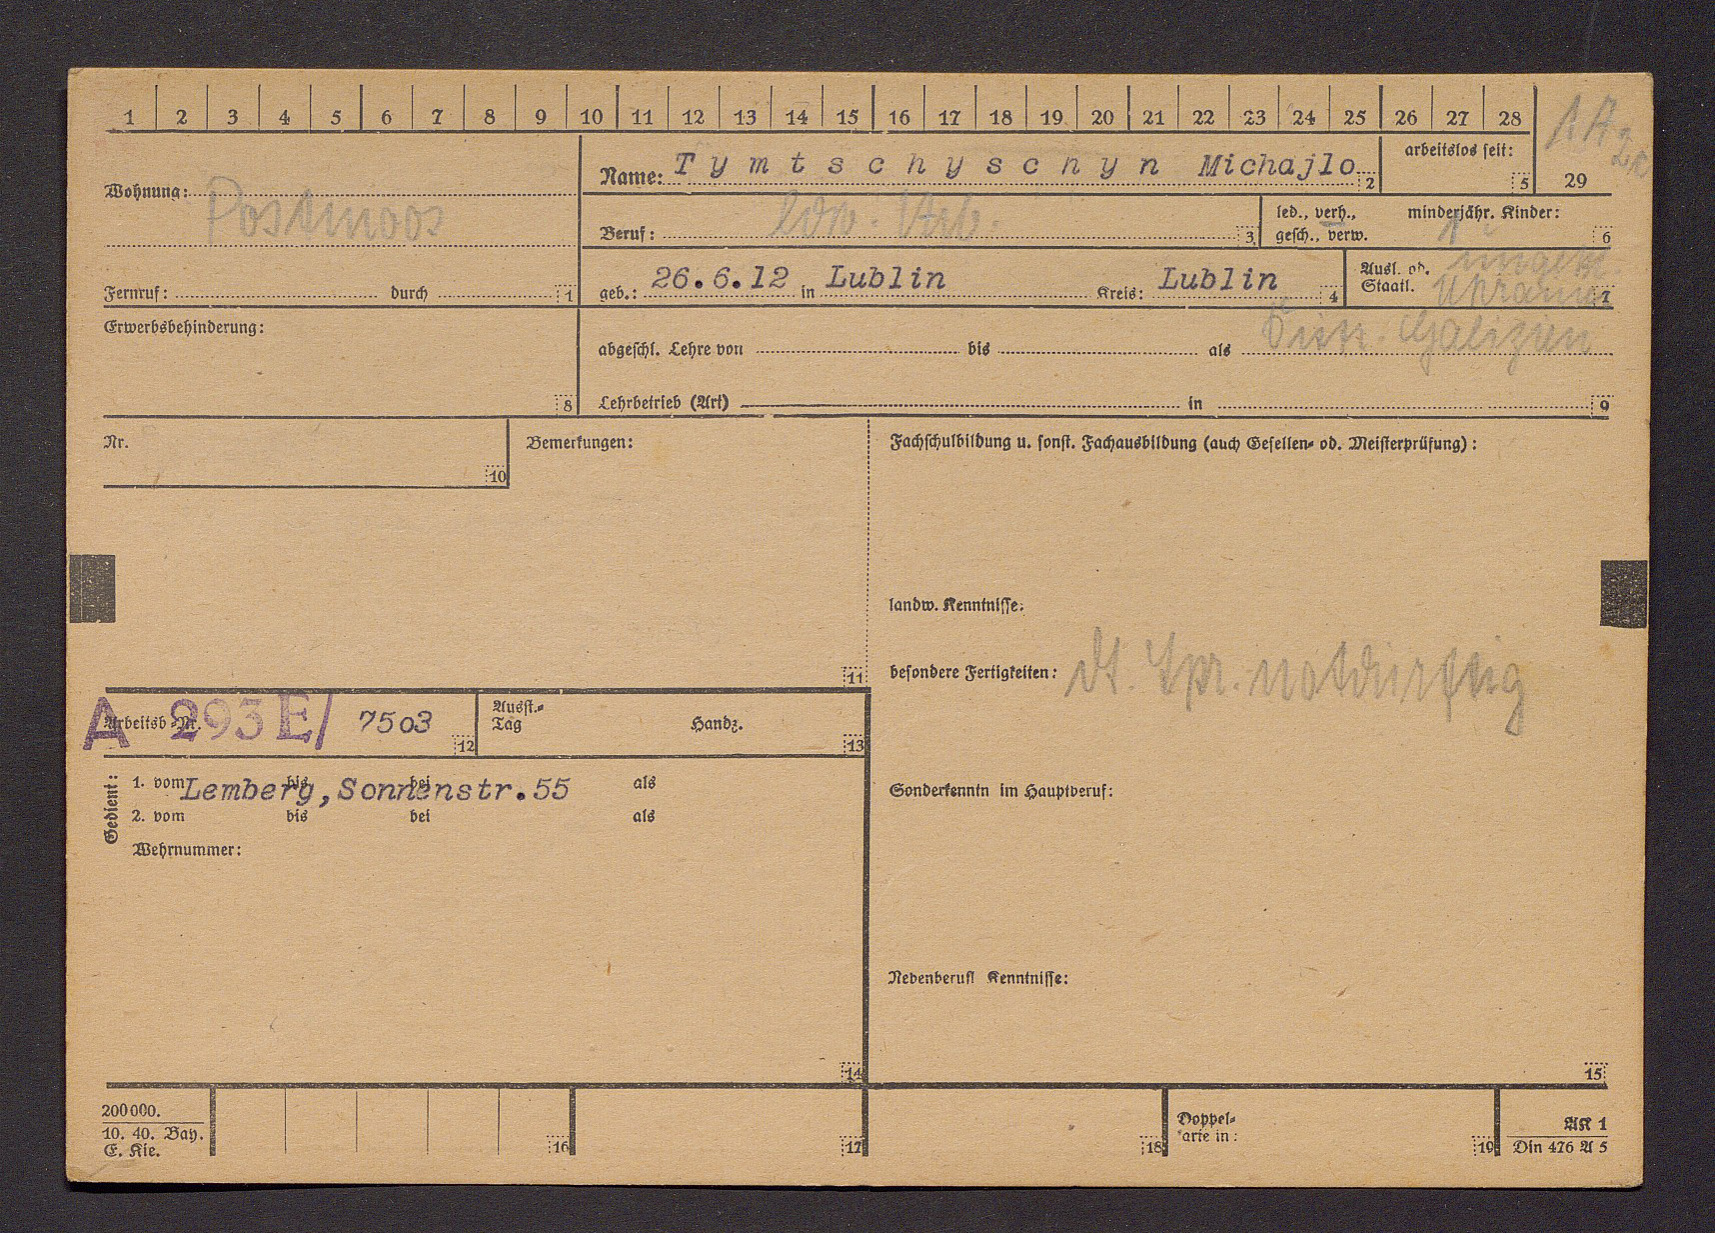 1 2 3 4 5 6 7 8 9 10 11 12 13 14 15 16 17 18 19 20 21 22 23 24 25 26 27 28
1A
29
Wohnung: Postmoos
Name: Tymtschyscnyn Michajlo 2
arbeitslos seit: 5
Beruf: ldw. Arb. 3
led., verh.,
gesch., verw.
minderjähr. Kinder: 1 6
Fernruf: durch 1
geb.: 26.6.12 in Lublin Kreis: Lublin 4
Ausl. od.
Staatl. ungekl.
Ukraine 7
Distr. Galizien
Erwerbsbehinderung: 8
abgeschl. Lehre von bis als
Lehrbetrieb (Art) in 9
Nr. 10
Bemerkungen: 11
Fachschulbildung u. sonst. Fachausbildung (auch Gesellen- od. Meisterprüfung):
landw. Kenntnisse:
besondere Fertigkeiten: dt. Spr. notdürftig
A Arbeitsb.-Nr. 293E/ 7503 12
Ausst.-
Tag Handz. 13
Gedient:
1. vom bis bei als
Lemberg, Sonnenstr.55
2. vom bis bei als
Wehrnummer:
14
Sonderkenntn im Hauptberuf:
Nebenberufl Kenntnisse:
15
200000.
10. 40. Bay.
E. Kie.
16 17 18
Doppel-
karte in: 19
AK 1
Din 476 A 5